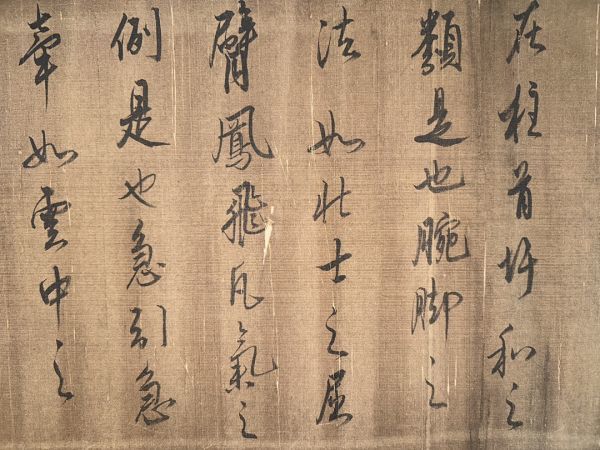 在柱首和之
類是也腕脚之
法如壯士之屈
臂鳳飛凡氣之
例是也急引急
牽如雲中之